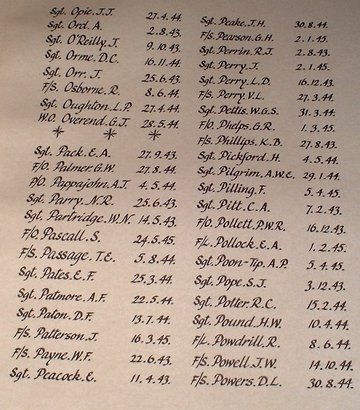 Sgt. Opie. J.T. 27.4.44.
Sgt. Ord. A. 2.8.43.
Sgt. O'Reilly. J. 9.10.43.
Sgt. Orme. D.C. 16.11.44.
Sgt. Orr. J. 25.6.43.
F/S. Osborne. R. 8.6.44.
Sgt. Oughton. L.P. 27.4.44.
W.O. Overend. G.T. 28.5.44.
* * *
Sgt. Pack. E.A. 27.9.43.
F/O. Palmer. G.W. 27.8.44.
P/O. Pappajohn. A.T. 4.5.44.
Sgt. Parry. N.R. 25.6.43.
Sgt. Partridge. W.N. 14.5.43.
F/O. Pascall. S. 24.5.45.
F/S. Passage. T.E. 5.8.44.
Sgt. Pates. E.F. 25.3.44.
Sgt. Patmore. A.F. 22.5.44.
Sgt. Paton. D.F. 13.7.44.
F/S. Patterson. J. 16.3.45.
F/S. Payne. W.F. 22.6.43.
Sgt. Peacock. E. 11.4.43.
Sgt. Peake. J.H. 30.8.44.
F/S. Pearson. G.H. 2.1.45.
Sgt. Perrin. R.J. 2.8.43.
Sgt. Perry. J. 2.1.45.
Sgt. Perry. L.D. 16.12.43.
F/S. Perry. V.L. 27.3.44.
Sgt. Pettis. W.G.S. 31.3.44.
F/O. Phelps. G.R. 1.3.45.
F/S. Phillips. K.B. 27.8.43.
Sgt. Pickford. H. 4.5.44.
Sgt. Pilgrim. A.W.E. 29.1.44.
Sgt. Pilling. F. 5.4.45.
Sgt. Pitt. C.A. 7.2.43.
F/O. Pollett. P.W.R. 16.12.43.
F/L. Pollock. E.A. 1.2.45.
Sgt. Poon-Tip. A.P. 5.4.45.
Sgt. Pope. S.J. 3.12.43.
Sgt. Potter. R.C. 15.2.44.
Sgt. Pound. H.W. 10.4.44.
F/L. Powdrill. R. 8.6.44.
F/S. Powell. J.W. 14.10.44.
F/S. Powers. D.L. 30.8.44.